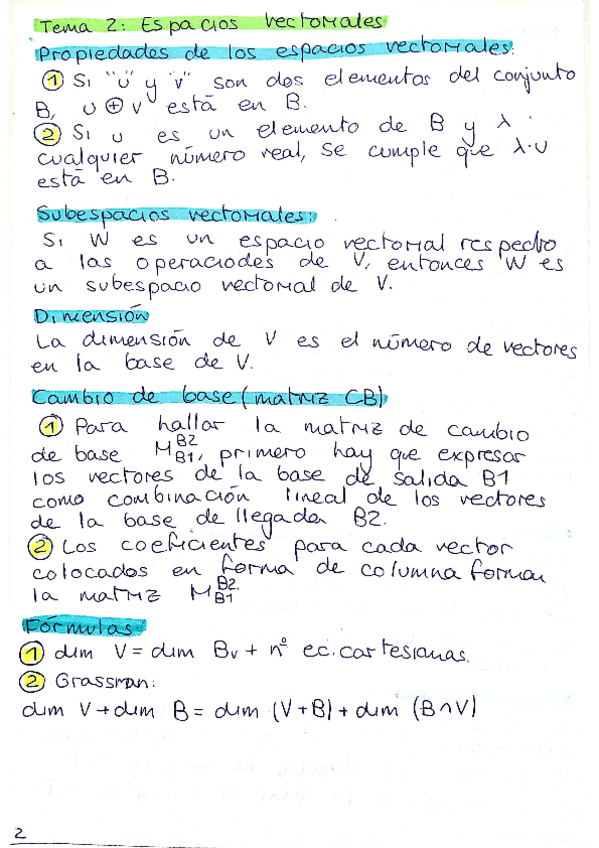 Tema 2: Espacios vectoriales
Propiedades de los espacios vectoriales:
1 Si "u" y "v" son dos elementos del conjunto
B, u ⊕ v está en B.
2 Si u es un elemento de B y λ
cualquier número real, se cumple que λ·u
está en B.
Subespacios vectoriales:
Si W es un espacio vectorial respecto
a las operaciodes de V, entonces W es
un subespacio vectorial de V.
Dimensión
La dimensión de V es el número de vectores
en la base de V.
Cambio de base (matriz CB)
1 Para hallar la matriz de cambio
de base M_{B1}^{B2}, primero hay que expresar
los vectores de la base de salida B1
como combinación lineal de los vectores
de la base de llegada B2.
2 Los coeficientes para cada vector
colocados en forma de columna forman
la matriz M_{B1}^{B2}.
Fórmulas:
1 dim V = dim Bv + nº ec. cartesianas.
2 Grassman:
dim V + dim B = dim (V+B) + dim (B∩V)
2